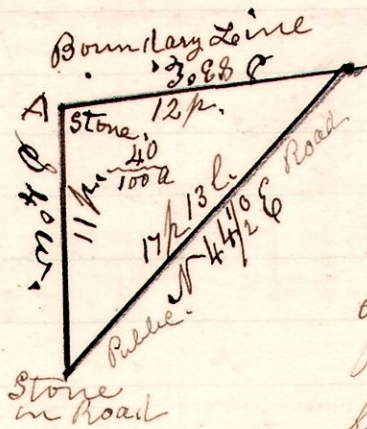 Boundary Line
A
12 p.
Stone.
40
100 a
S 4° W.
11 p.
17 p 13 l.
N 44 1/2° E
Public Road
Stone
in Road